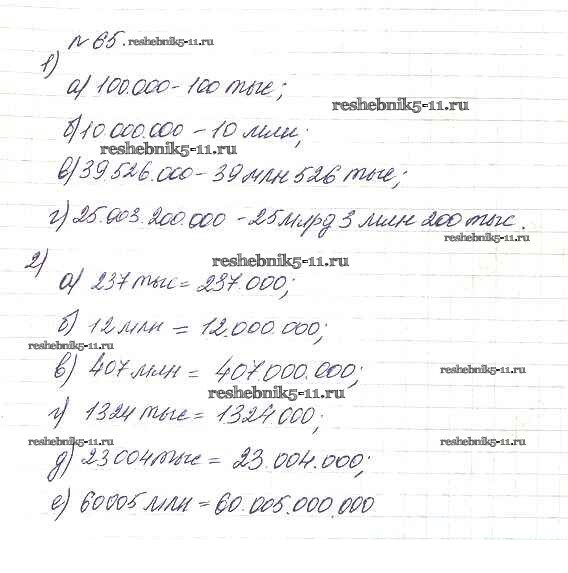 № 65. reshebnik5-11.ru
1)
а) 100.000 - 100 тыс;
reshebnik5-11.ru
б) 10 000.000 - 10 млн;
reshebnik5-11.ru
в) 39.526.000 - 39 млн 526 тыс;
г) 25.003.200.000 - 25 млрд 3 млн 200 тыс.
reshebnik5-11.ru
2)
reshebnik5-11.ru
а) 237 тыс = 237.000;
б) 12 млн = 12.000.000;
reshebnik5-11.ru
в) 407 млн = 407 000.000;
reshebnik5-11.ru
reshebnik5-11.ru
г) 1324 тыс = 1324 000;
reshebnik5-11.ru
reshebnik5-11.ru
д) 23 004 тыс = 23.004.000;
е) 60005 млн = 60.005.000.000